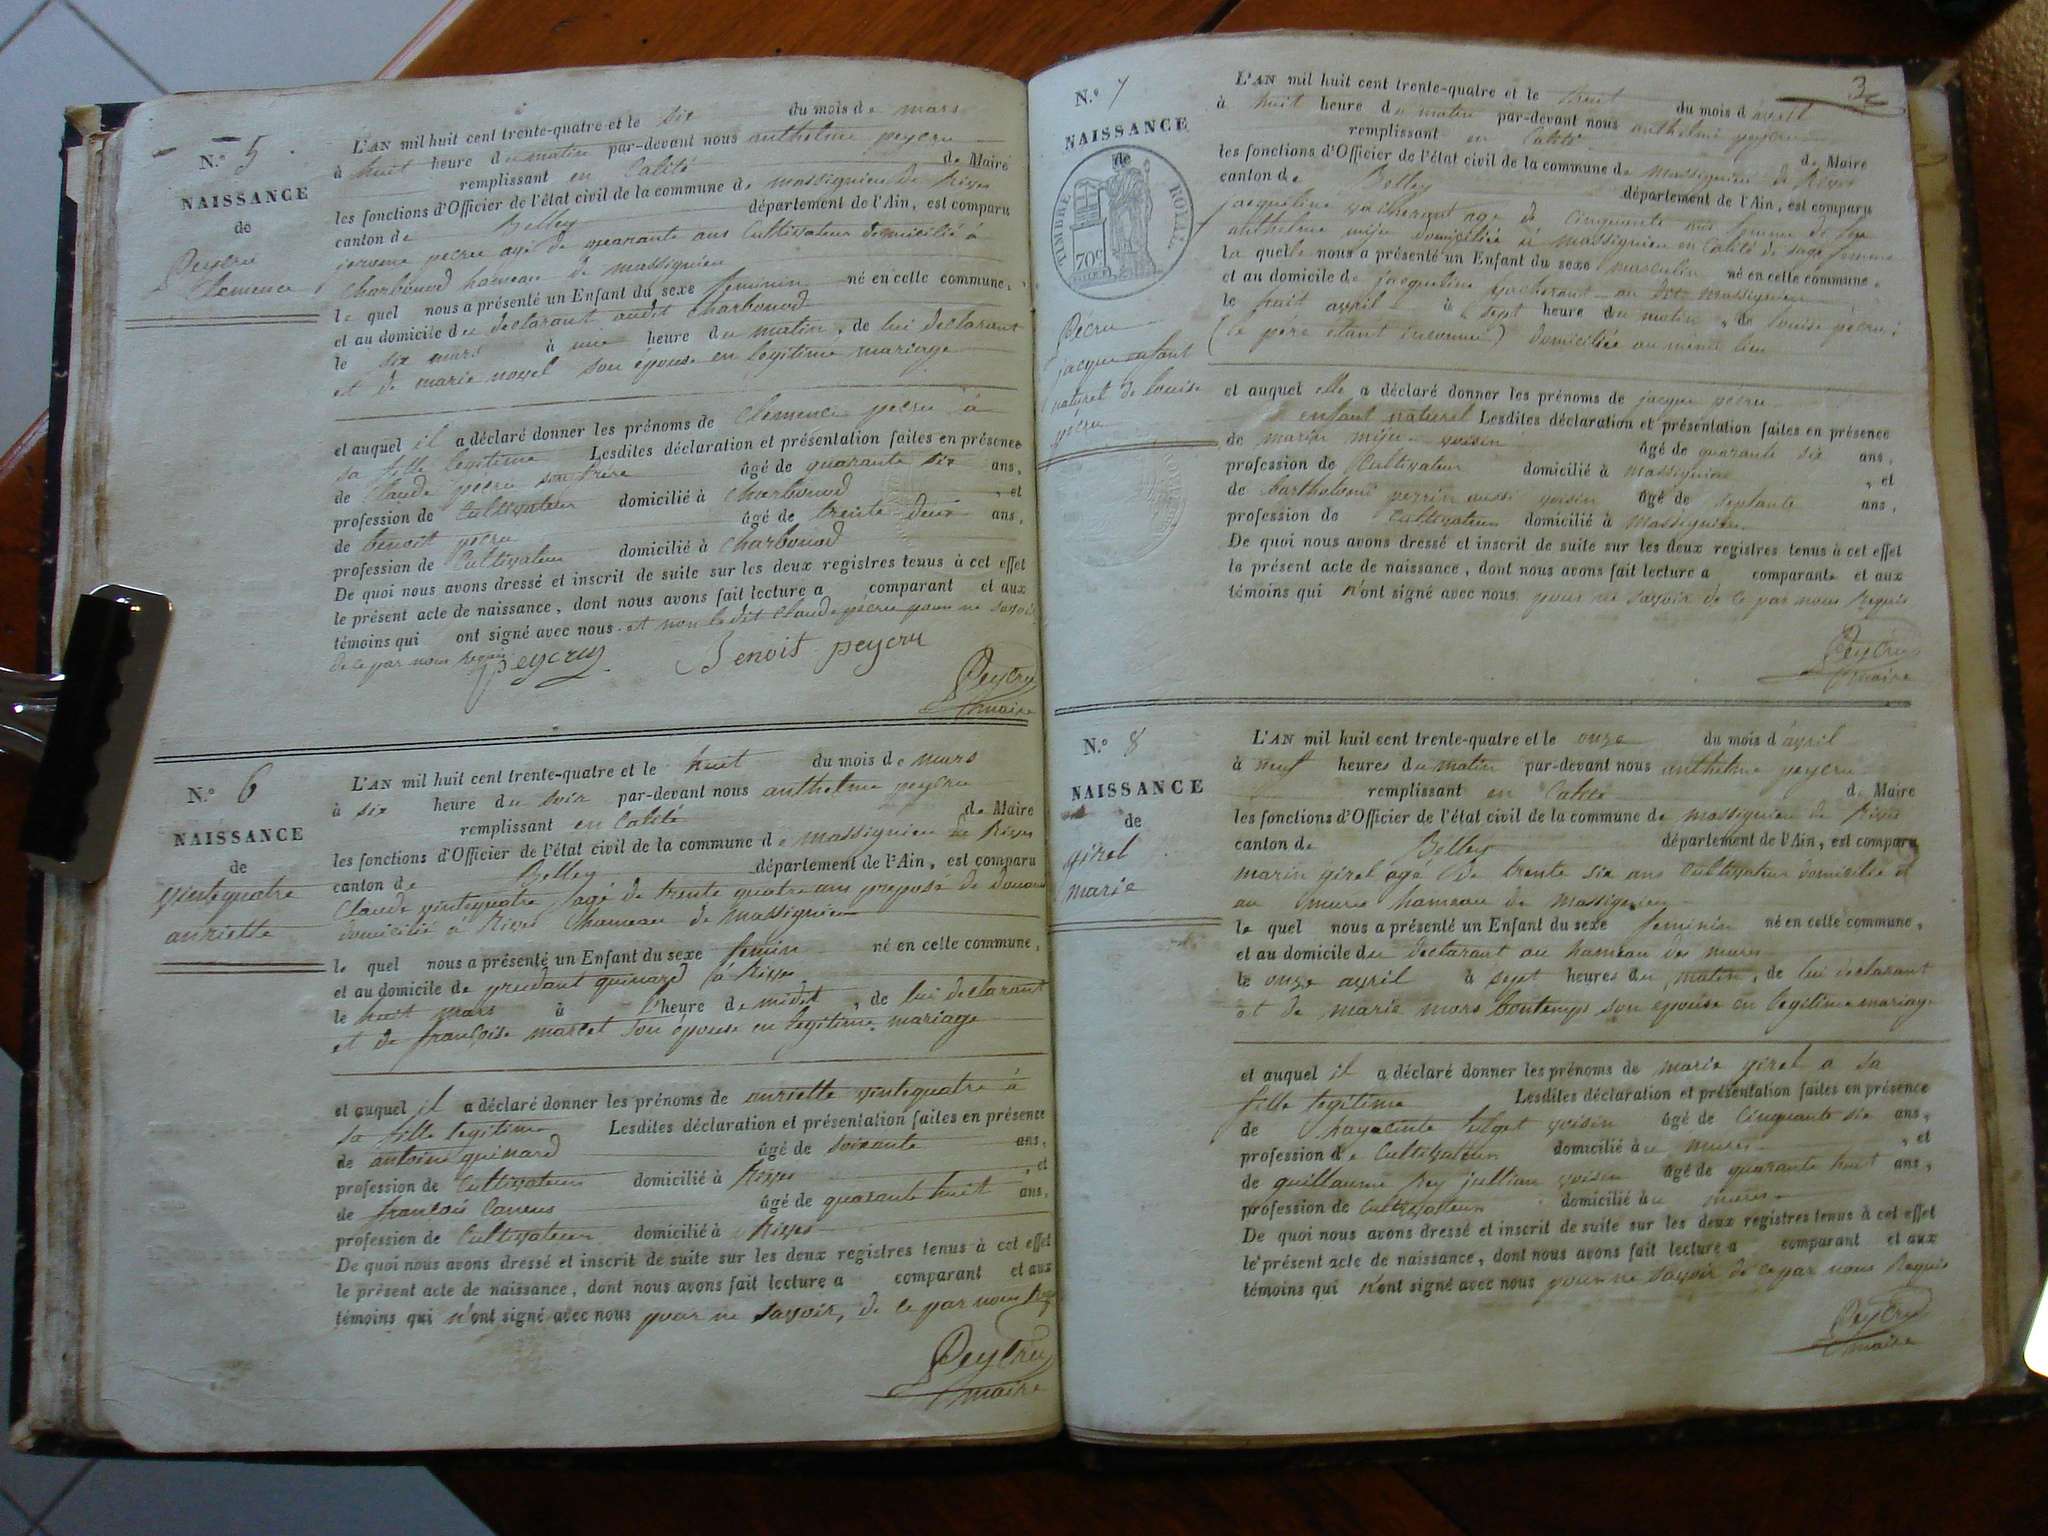 N.º 5
NAISSANCE
de
Peycru
Clemence
L'AN mil huit cent trente-quatre et le six du mois de mars
à huit heure du matin par-devant nous anthelme peycru
remplissant en Calité de Maire
les fonctions d'Officier de l'état civil de la commune de massignieu de Rives
canton de Belley département de l'Ain, est comparu
pecru agé de quarante ans Cultivateur domicilié à
Charbonod hameau de massignieu
le quel nous a présenté un Enfant du sexe feminin né en cette commune,
et au domicile du declarant audit Charbonod
le six mars à une heure du matin, de lui declarant
et de marie novel son épouse en legitime mariage
et auquel il a déclaré donner les prénoms de Clemence pecru à
sa fille legitime Lesdites déclaration et présentation faites en présence
de Claude pecru son frère âgé de quarante six ans,
profession de Cultivateur domicilié à Charbonod, et
de benoit pecru âgé de trente deux ans,
profession de Cultivateur domicilié à Charbonod
De quoi nous avons dressé et inscrit de suite sur les deux registres tenus à cet effet
le présent acte de naissance, dont nous avons fait lecture a comparant et aux
témoins qui ont signé avec nous et non ledit Claude pecru pour ne savoir
de ce par nous Requis
Peycru Benoit peycru
Peycru
maire
N.º 6
NAISSANCE
de
vintequatre
anriette
L'AN mil huit cent trente-quatre et le huit du mois de mars
à six heure du soir par-devant nous anthelme peycru
remplissant en Calité de Maire
les fonctions d'Officier de l'état civil de la commune de massignieu de Rives
canton de Belley département de l'Ain, est comparu
Claude vintequatre agé de trente quatre ans preposé de douane
domicilié à Rives hameau de massignieu
le quel nous a présenté un Enfant du sexe femin né en cette commune,
et au domicile de prudant quinard à Rives
le huit mars à l'heure de midit, de lui declarant
et de françoise marcet son épouse en legitime mariage
et auquel il a déclaré donner les prénoms de anriette vintequatre à
sa fille legitime Lesdites déclaration et présentation faites en présence
de antoine quinard âgé de soixante ans,
profession de Cultivateur domicilié à Rives, et
de francois âgé de quarante huit ans,
profession de Cultivateur domicilié à Rives
De quoi nous avons dressé et inscrit de suite sur les deux registres tenus à cet effet
le présent acte de naissance, dont nous avons fait lecture a comparant et aux
témoins qui n'ont signé avec nous pour ne savoir, de ce par nous
Peycru
maire
3
N.º 7
NAISSANCE
de
TIMBRE ROYAL
70c
Pécru
jacque enfant
naturel de louise
pécru
L'AN mil huit cent trente-quatre et le huit du mois d'avril
à huit heure du matin par-devant nous anthelme peycru
remplissant en Calité de Maire
les fonctions d'Officier de l'état civil de la commune de massignieu de Rives
canton de Belley département de l'Ain, est comparu
jacqueline vacherant age de Cinquante ans femme de
anthelme domiciliée à massignieu en Calité de sage femme
La quelle nous a présenté un Enfant du sexe masculin né en cette commune,
et au domicile de jacqueline vacherant au massignieu
le huit avril à sept heure du matin, de louise pécru
(le père etant inconnu) domiciliée au même lieu
et auquel elle a déclaré donner les prénoms de jacque pécru
enfant naturel Lesdites déclaration et présentation faites en présence
de marin voisin âgé de quarante six ans,
profession de Cultivateur domicilié à massignieu, et
de bartholomé perrin aussi voisin âgé de septante ans,
profession de Cultivateur domicilié à massignieu
De quoi nous avons dressé et inscrit de suite sur les deux registres tenus à cet effet
la présent acte de naissance, dont nous avons fait lecture a comparante et aux
témoins qui n'ont signé avec nous pour ne savoir de ce par nous Requis
Peycru
maire
N.º 8
NAISSANCE
de
girel
marie
L'AN mil huit cent trente-quatre et le onze du mois d'avril
à neuf heures du matin par-devant nous anthelme peycru
remplissant en Calité de Maire
les fonctions d'Officier de l'état civil de la commune de massignieu de Rives
canton de Belley département de l'Ain, est comparu
marin girel agé de trente six ans Cultivateur domicilié
au mures hameau de massignieu
le quel nous a présenté un Enfant du sexe feminin né en cette commune,
et au domicile du declarant au hameau des mures
le onze avril à sept heures du matin, de lui declarant
et de marie bontemps son epouse en legitime mariage
et auquel il a déclaré donner les prénoms de marie girel a sa
fille legitime Lesdites déclaration et présentation faites en présence
de voisin âgé de Cinquante six ans,
profession de Cultivateur domicilié au mures, et
de guillaume Rey jullian voisin âgé de quarante huit ans,
profession de Cultivateur domicilié au mures
De quoi nous avons dressé et inscrit de suite sur les deux registres tenus à cet effet
le présent acte de naissance, dont nous avons fait lecture a comparant et aux
témoins qui n'ont signé avec nous pour ne savoir de ce par nous Requis
Peycru
maire